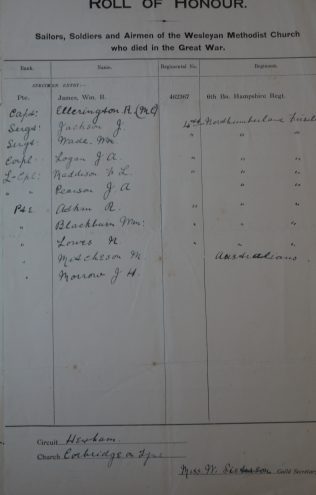 ROLL OF HONOUR.
Sailors, Soldiers and Airmen of the Wesleyan Methodist Church
who died in the Great War.
Rank. Name. Regimental No. Regiment.
SPECIMEN ENTRY:—
Pte. James, Wm. H. 462367 6th Bn. Hampshire Regt.
Capt: Etherington R. (M.C)
Sergt: Jackson J. 4th Northumberland
Sergt: Wade Wm. " " "
Corpl: Logan J A. " " "
L-Cpl: Maddison L. " " "
" " Pearson J A " " "
Pte Adkin R. " " "
" Blackburn Wm: " "
" Lowes N. " " "
" M. Australians
" Morrow J H.
Circuit Hexham.
Church Corbridge on Tyne
Miss W. Guild Secretary